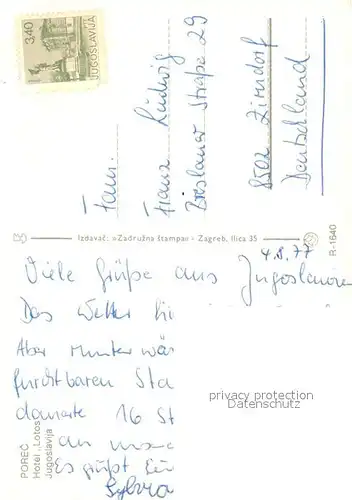 3,40
JUGOSLAVIJA
Fam.
Franz Ludwig
Breslauer Straße 29
8502 Zirndorf
Deutschland
Izdavač: »Zadružna štampa« - Zagreb, Ilica 35
R-1640
POREC
Hotel „Lotos
Jugoslavija
4.8.77
Viele Grüße aus Jugoslawien
Das Wetter hi
Aber runter wär
furchtbaren Sta
dauerte 16 St
an
Es grüßt Eu
Sylvia
privacy protection
Datenschutz